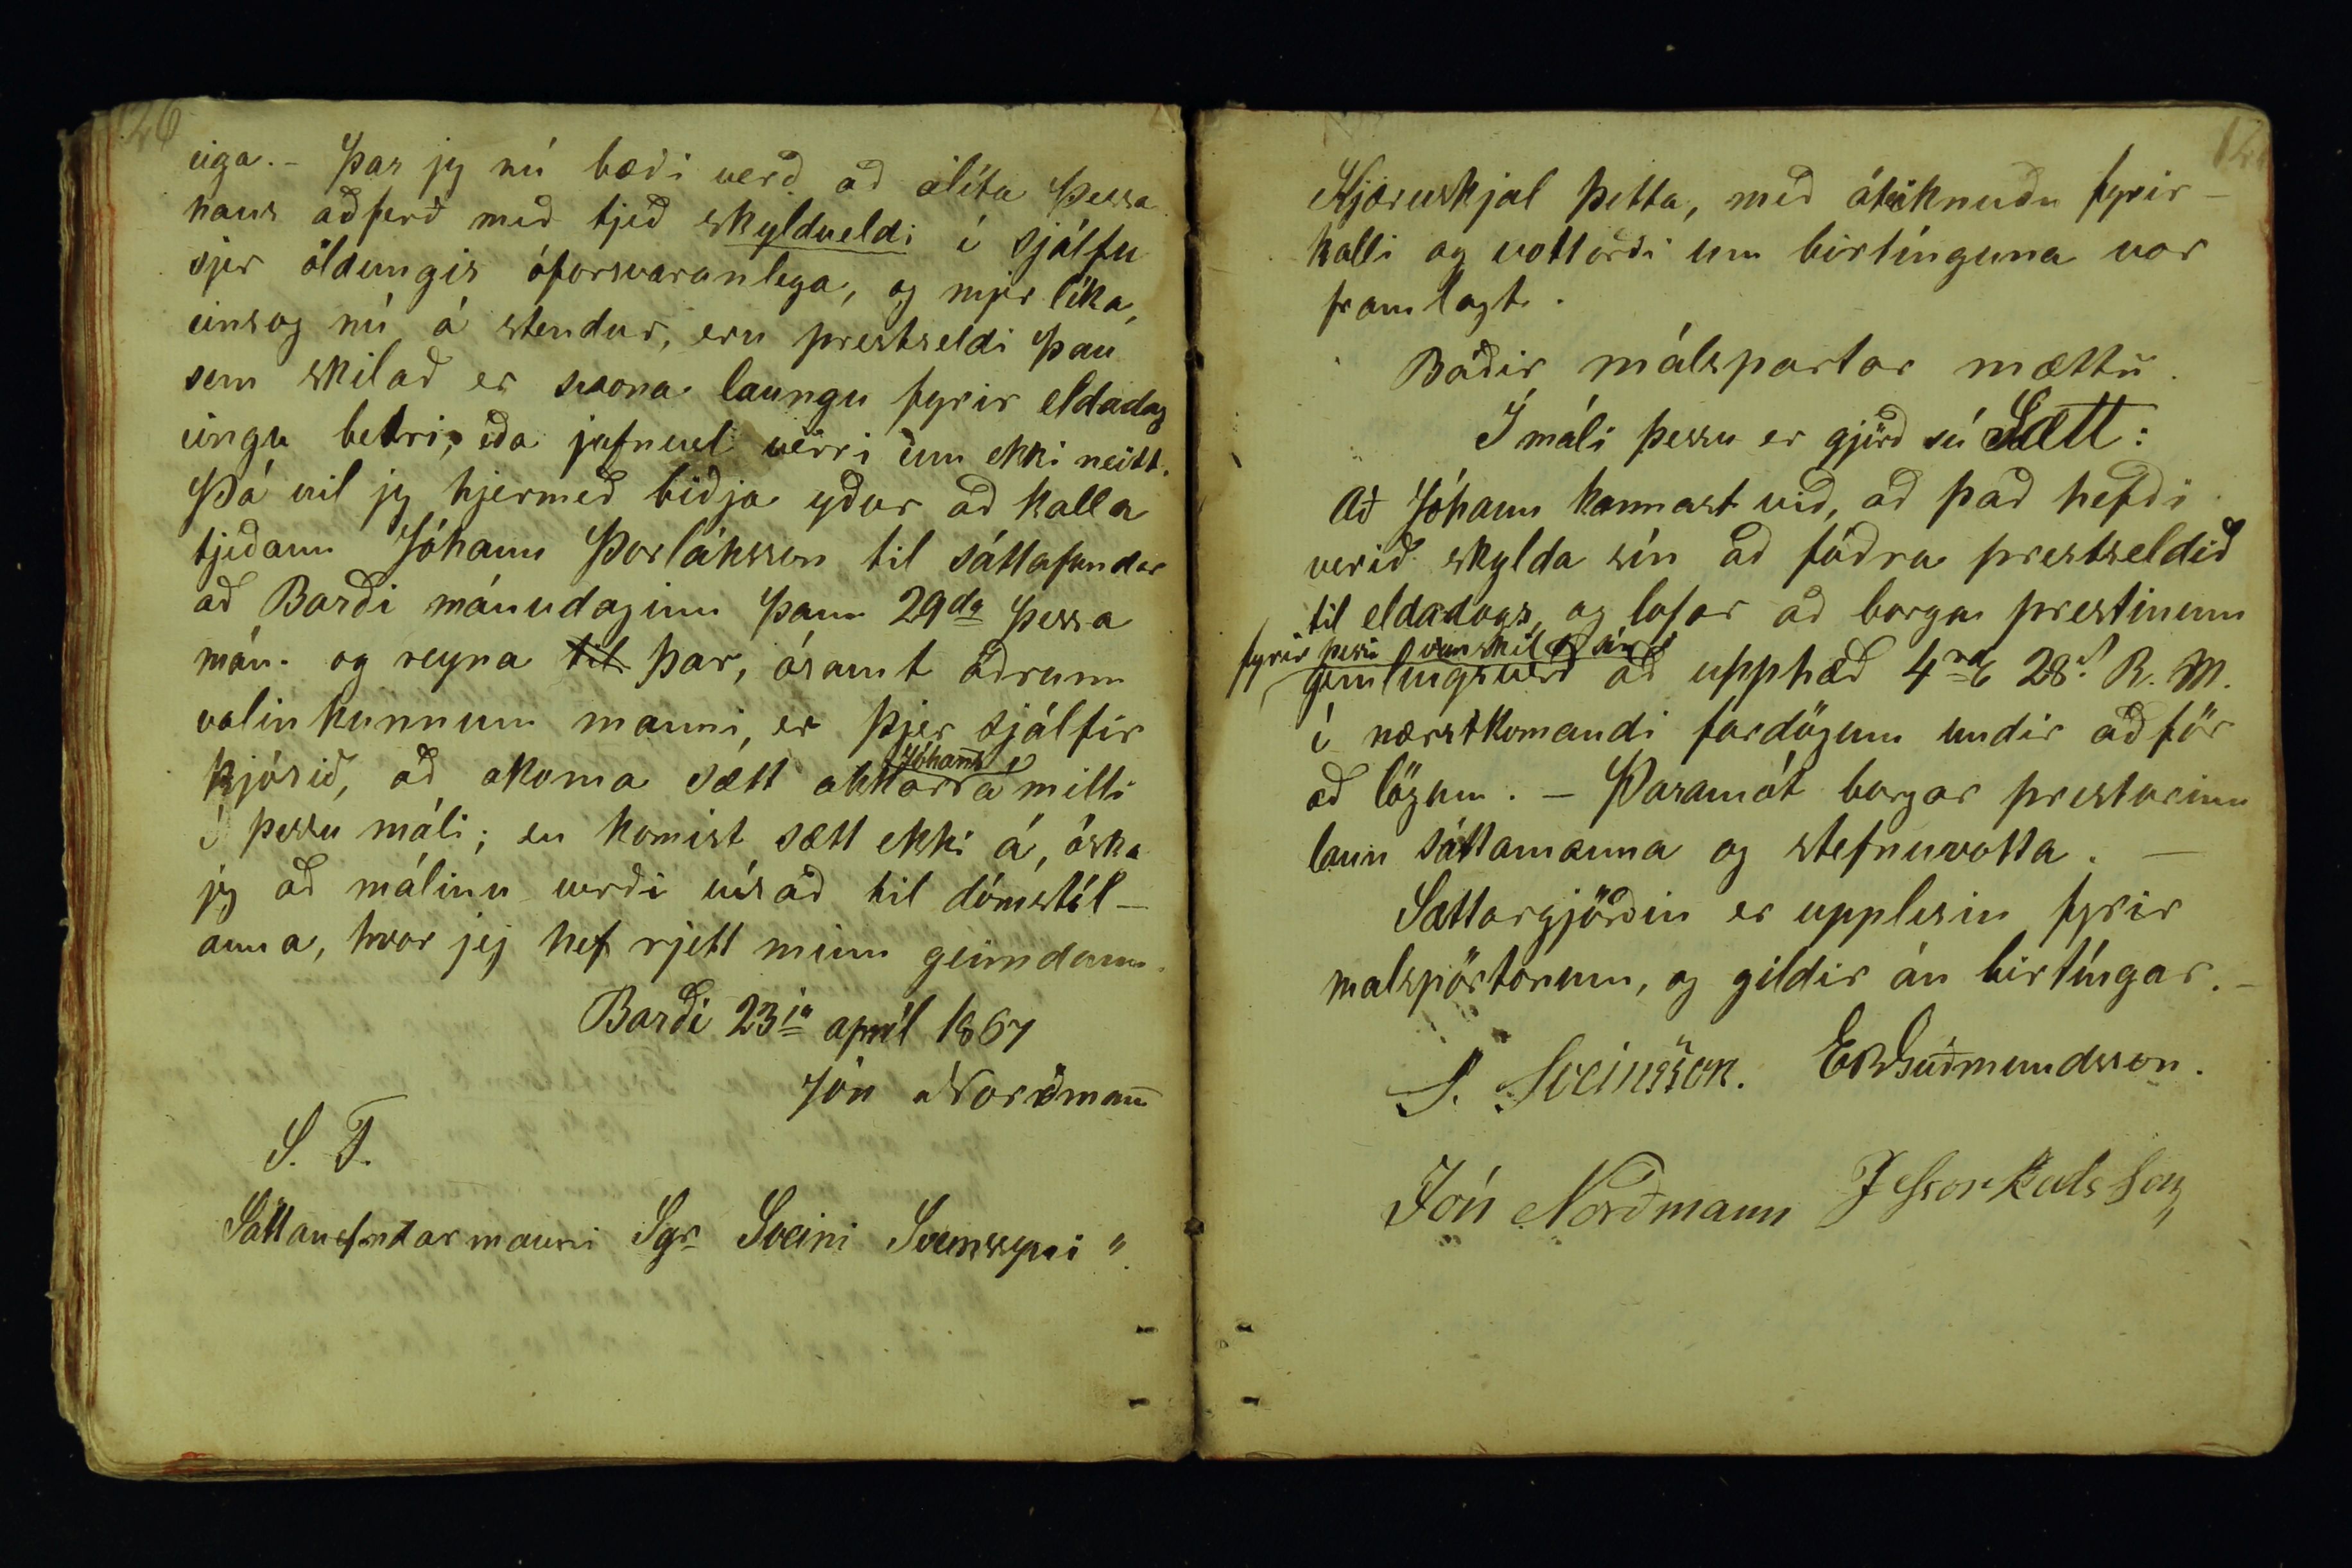 126
eiga. - Þar jeg nú bæði verð að álíta þessa
hans aðferð með tjeð skyldueldi í sjálfu
sjer öldungis óforsvaranlega, og mjer líka,
einsog nú á stendur, eru prestseldi þau
sem skilað er svona laungu fyrir eldadag
eingu betri, eða jafnvel verri enn ekki neitt.
Þá vil jeg hjermeð biðja yður að kalla
tjeðann Jóhann Þorláksson til sáttafundar
að Barði mánudaginn þann 29da þessa
mán. og reyna til þar, ásamt öðrum
valinkunnum manni, er þjer sjálfir
kjósið, að akoma sætt okkarra Jóhanns á milli
í þessu máli; en komist sætt ekki á, óska
jeg að málinu verði vísað til dómstól-
anna, hvar jeg hef rjett minn geimdann.
Barði 23ja apríl 1867
Jón Norðmann
S. T.
Sáttanefndarmanni Sgr Sveini Sveinssyni "
Kjæruskjal þetta, með áteiknuðu fyrir-
kalli og vottorði um birtínguna var
framlagt.
Báðir málspartar mættu.
Í máli þessu er gjörð sú Sætt:
Að Jóhann kannast við, að það hefði
verið skylda sín að fóðra prestseldið
til eldadags, og lofar að borga prestinum
fyrir þessi vanskil sín
gemlingsverð að upphæð 4rd 28s R. M.
í næstkomandi fardögum undir aðför
að lögum. - Þaramót borgar presturinn
laun sáttamanna og stefnuvotta. -
Sættargjörðin er upplesin fyrir
malspörtonum, og gildir án birtíngar. -
S. Sveinsson. E B Guðmundsson.
Jón Norðmann J Þorláksson